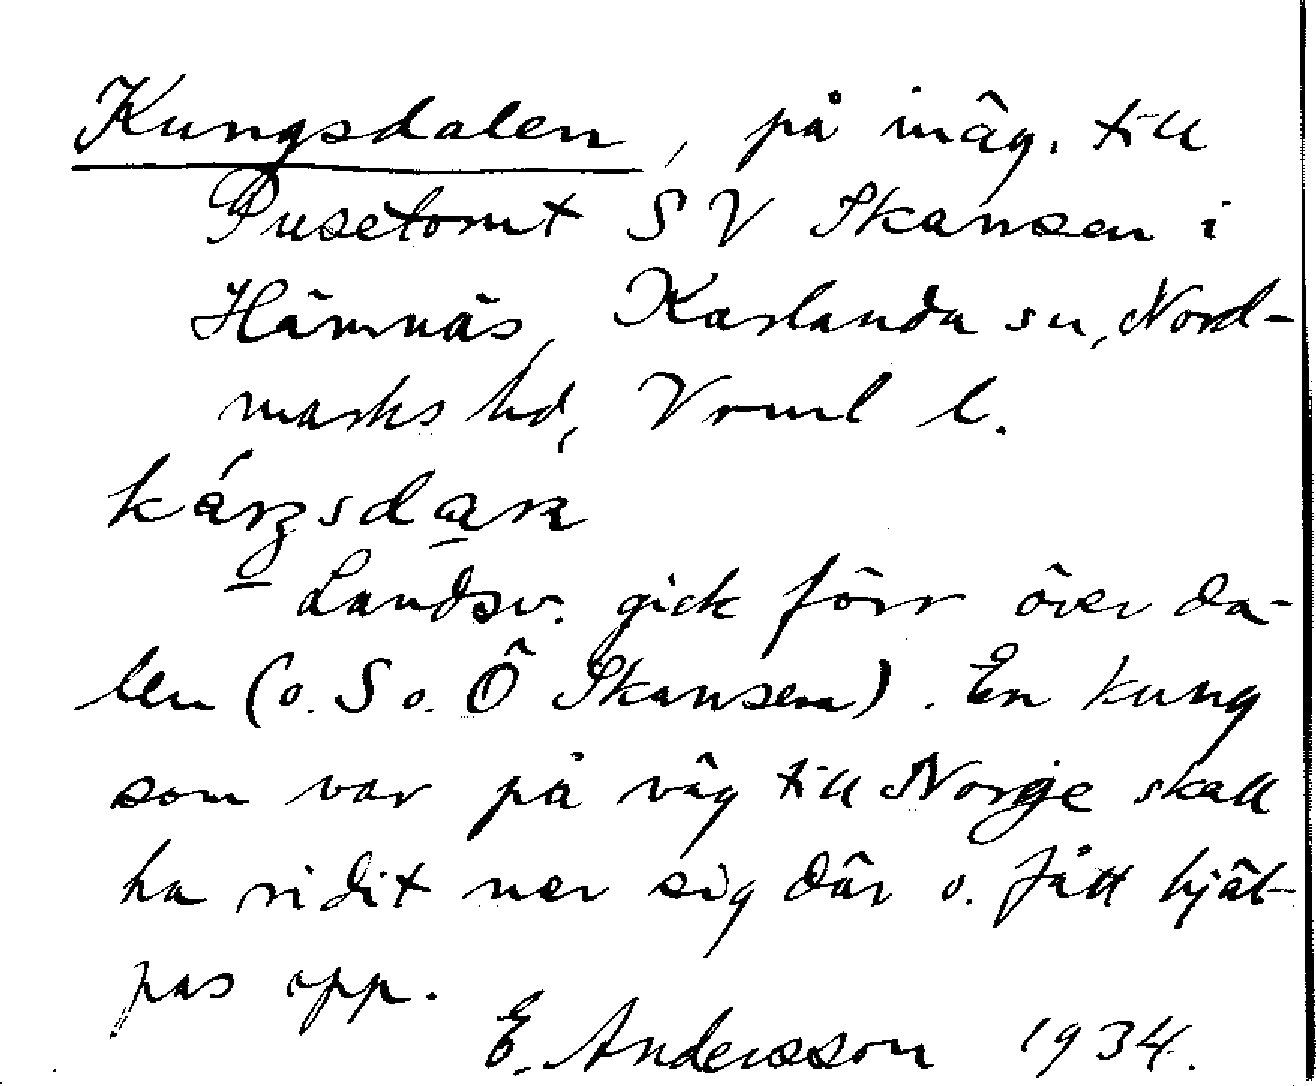 Kungsdalen, på inäg. till
Pusetomt SV Skansen i
Hämnäs, Karlanda sn, Nord-
marks hd, Vrml l.
Landsv. gick förr över da-
len (o. S o. Ö Skansen). En kung
som var på väg till Norge skall
ha ridit ner sig där o. fått hjäl-
pas opp.
E. Andersson 1934.